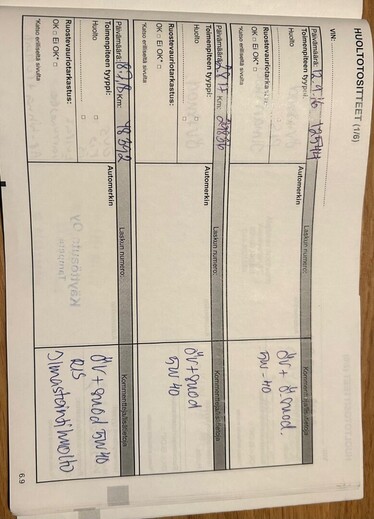 HUOLTOTOSITTEET (1/6)
VIN:
Päivämäärä: 12.9.16 12544
Toimenpiteen tyyppi:
Huolto
Ruostevauriotarkastus:
OK □ Ei OK* □
*Katso erillisettä sivulta
Automerkin
Laskun numero:
öv + ö.suod.
5W-40
Päivämäärä: Km:
Toimenpiteen tyyppi:
Huolto □
Ruostevauriotarkastus:
OK □ Ei OK* □
*Katso erillisettä sivulta
Automerkin
Laskun numero:
Kommentteja/lisätietoja
öv + suod
5W40
Päivämäärä: Km: 48392
Toimenpiteen tyyppi:
Huolto □
Ruostevauriotarkastus:
OK □ Ei OK* □
*Katso erillisettä sivulta
Automerkin
Laskun numero:
Kommentteja/lisätietoja
öv + suod 5W40
RIS
Ilmastointihuolto
6.9